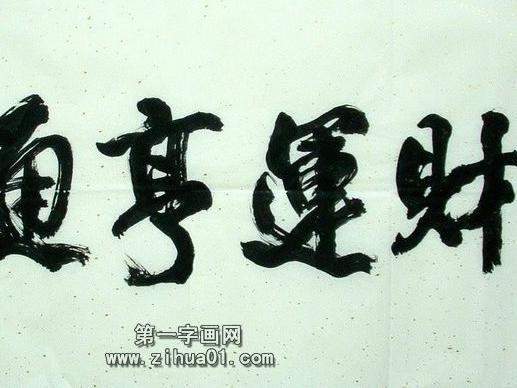 財運亨通
第一字画网
www.zihua01.com